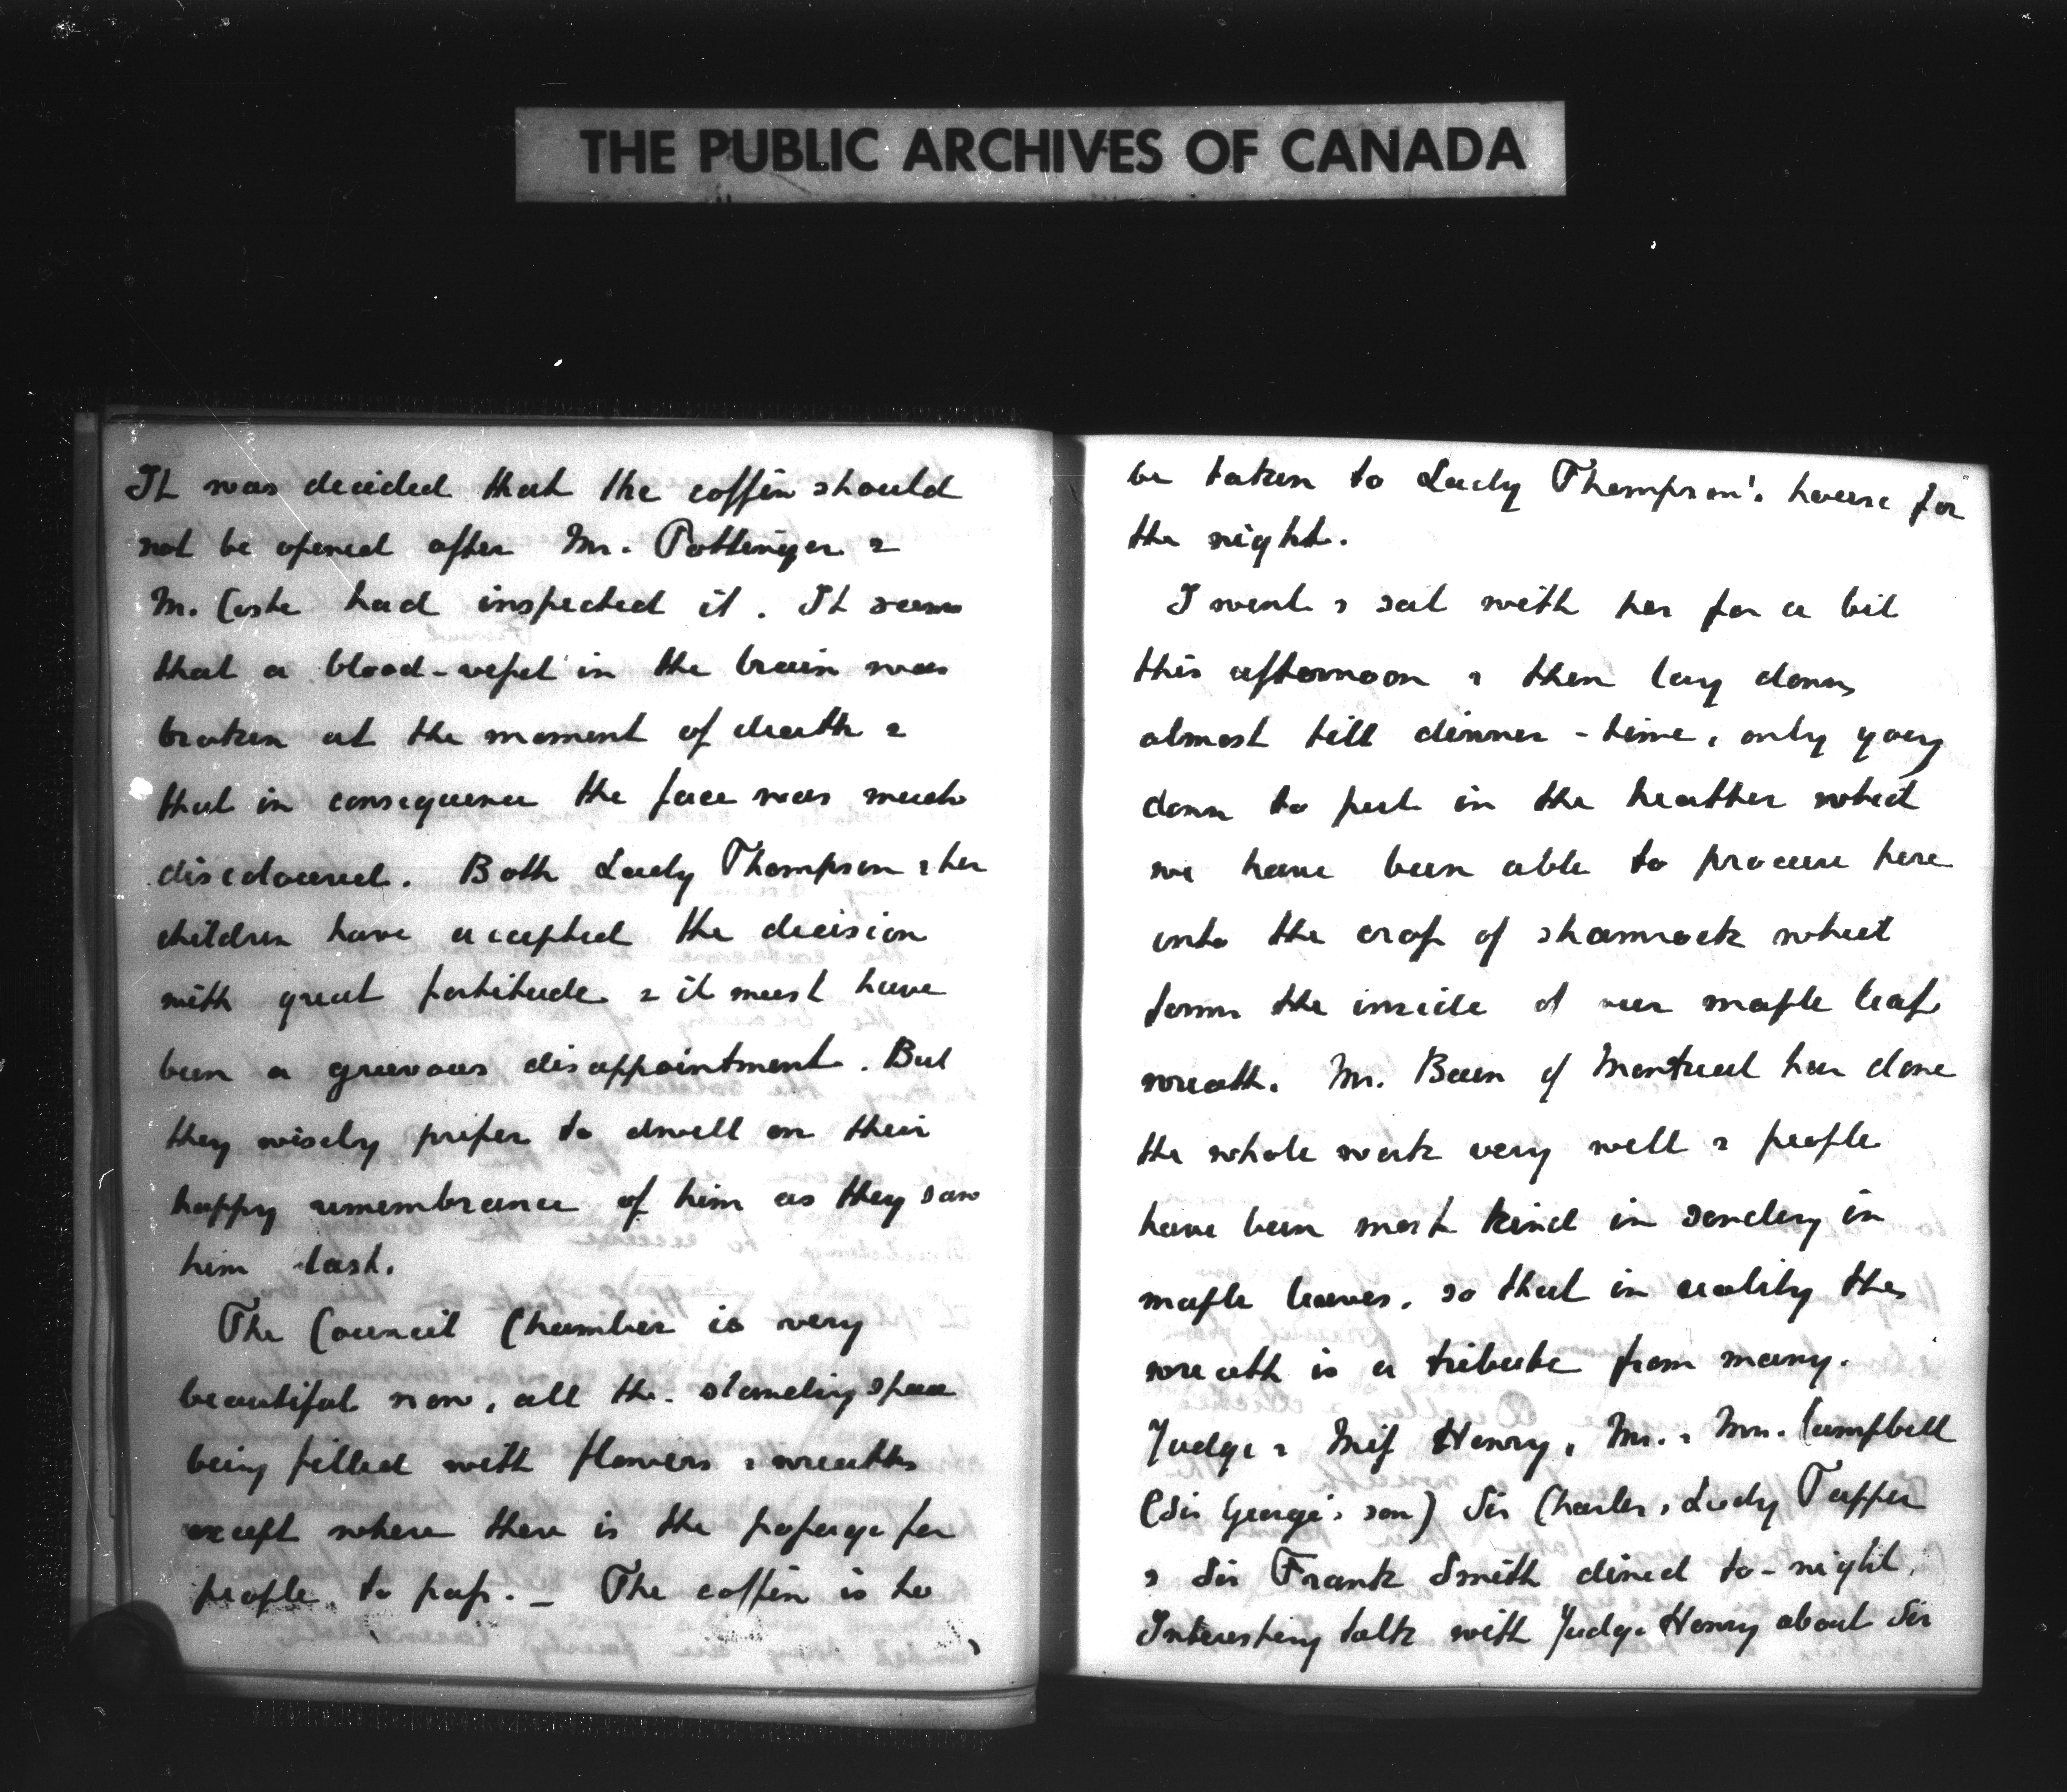 THE PUBLIC ARCHIVES OF CANADA
It was decided that the coffin should
not be opened after Mr. Pottinger &
M. Coste had inspected it. It seems
that a blood-vessel in the brain was
broken at the moment of death &
that in consequence the face was much
discoloured. Both Lady Thompson & her
children have accepted the decision
with great fortitude & it must have
been a grievous disappointment. But
they wisely prefer to dwell on their
happy remembrance of him as they saw
him last.
The Council Chamber is very
beautiful now, all the standing space
being filled with flowers & wreaths
except where there is the passage for
people to pass. — The coffin is to
be taken to Lady Thompson's house for
the night.
I went & sat with her for a bit
this afternoon & then lay down
almost till dinner-time, only going
down to put in the heather which
we have been able to procure here
into the cross of shamrock which
forms the inside of our maple leaf
wreath. Mr. Bain of Montreal has done
the whole work very well & people
have been most kind in sending in
maple leaves, so that in reality the
wreath is a tribute from many.
Judge & Miss Henry, Mr. & Mrs. Campbell
(Sir George's son) Sir Charles & Lady Tupper
& Sir Frank Smith dined to-night.
Interesting talk with Judge Henry about Sir